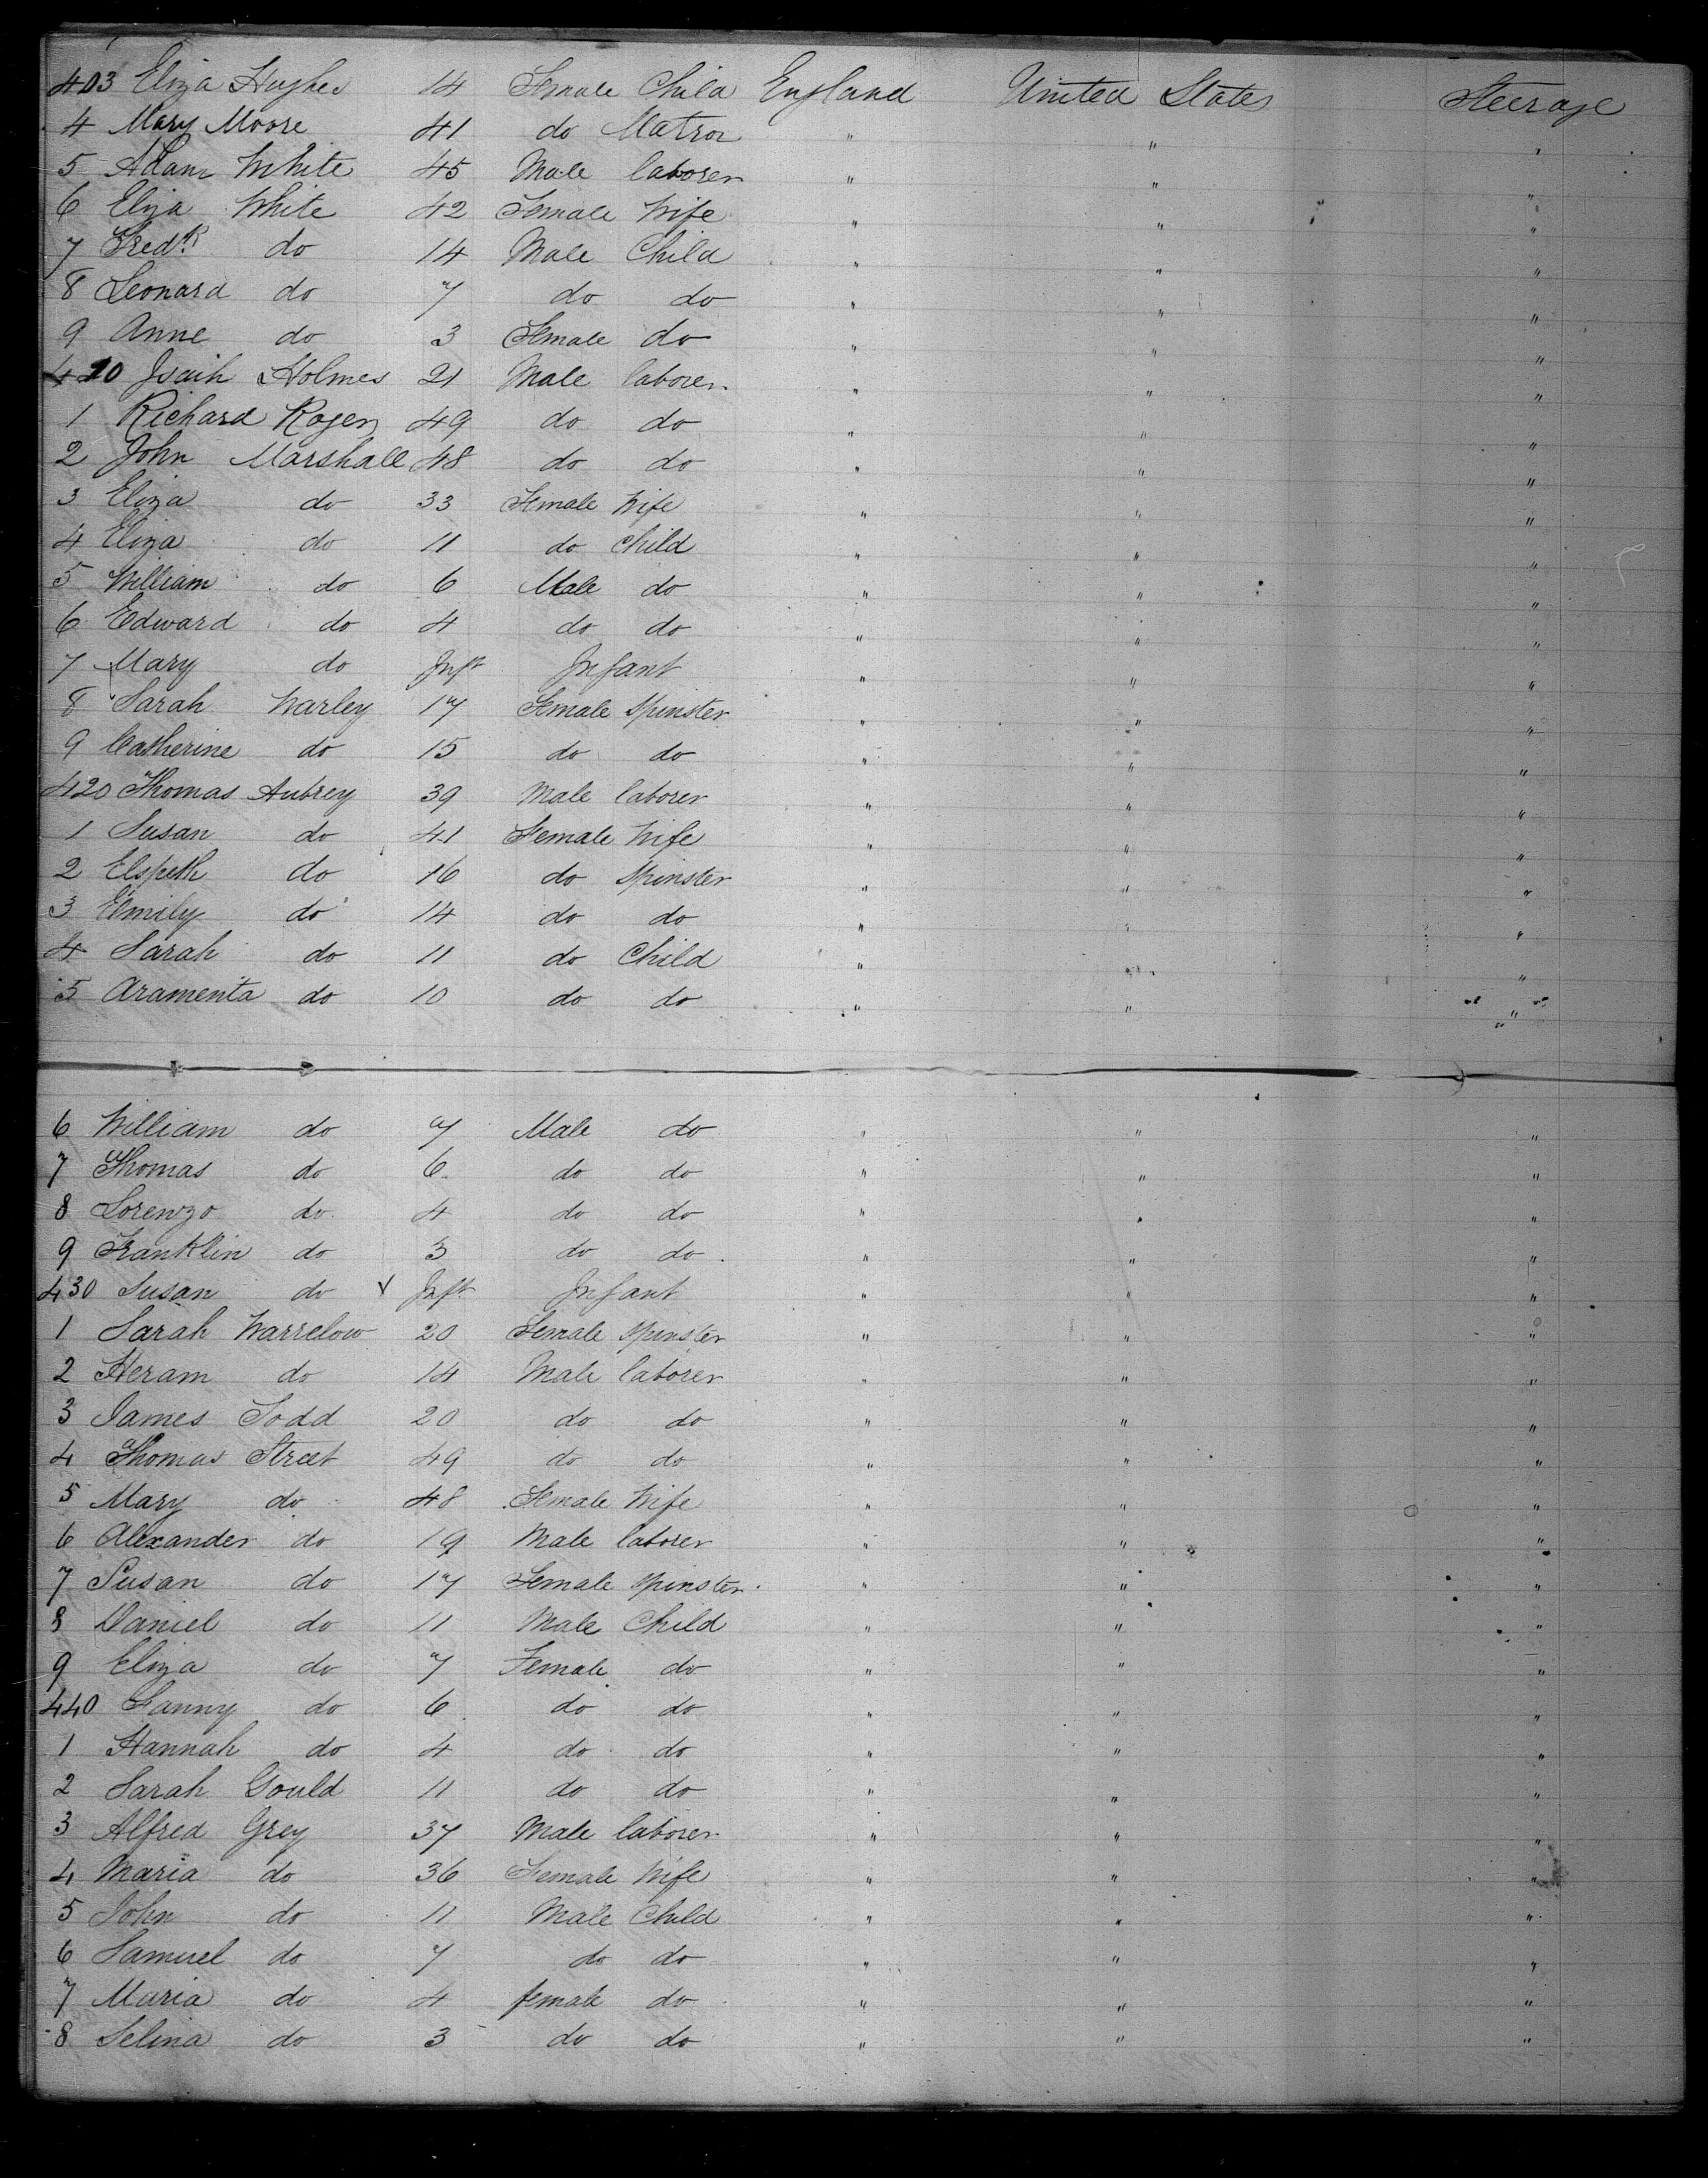 403 Eliza Hughes 14 Female Child England United States Steerage
4 Mary Moore 41 do Matron " " "
5 Adam White 45 Male laborer " " "
6 Eliza White 42 Female Wife " " "
7 Fredk. do 14 Male Child " " "
8 Leonard do 7 do do " " "
9 Anne do 3 Female do " " "
410 Isaih Holmes 21 Male laborer " " "
1 Richard Rogers 49 do do " " "
2 John Marshall 48 do do " " "
3 Eliza do 33 Female Wife " " "
4 Eliza do 11 do Child " " "
5 William do 6 Male do " " "
6 Edward do 4 do do " " "
7 Mary do Inft Infant " " "
8 Sarah Warley 17 Female Spinster " " "
9 Catherine do 15 do do " " "
420 Thomas Aubrey 39 Male laborer " " "
1 Susan do 41 Female Wife " " "
2 Elspeth do 16 do Spinster " " "
3 Emily do 14 do do " " "
4 Sarah do 11 do Child " " "
5 Aramenta do 10 do do " " "
6 William do 7 Male do " " "
7 Thomas do 6 do do " " "
8 Lorenzo do 4 do do " " "
9 Franklin do 3 do do " " "
430 Susan do Inft Infant " " "
1 Sarah Warrelow 20 Female Spinster " " "
2 Heram do 14 Male laborer " " "
3 James Todd 20 do do " " "
4 Thomas Street 49 do do " " "
5 Mary do 48 Female Wife " " "
6 Alexander do 19 Male laborer " " "
7 Susan do 17 Female Spinster " " "
8 Daniel do 11 Male Child " " "
9 Eliza do 7 Female do " " "
440 Fanny do 6 do do " " "
1 Hannah do 4 do do " " "
2 Sarah Gould 11 do do " " "
3 Alfred Grey 37 Male laborer " " "
4 Maria do 36 Female Wife " " "
5 John do 11 Male Child " " "
6 Samuel do 7 do do " " "
7 Maria do 4 female do " " "
8 Selina do 3 do do " " "